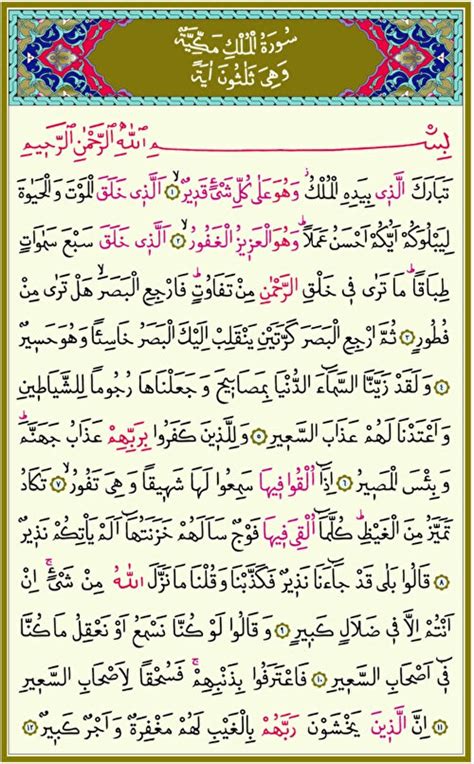 سُورَةُ الْمُلْكِ مَكِّيَّةٌ
وَهِيَ ثَلٰثُونَ اٰيَةً
بِسْمِ اللّٰهِ الرَّحْمٰنِ الرَّحِيمِ
تَبَارَكَ الَّذِي بِيَدِهِ الْمُلْكُۘ وَهُوَ عَلٰى كُلِّ شَيْءٍ قَدِيرٌۙ ﴿١﴾ اَلَّذِي خَلَقَ الْمَوْتَ وَالْحَيٰوةَ
لِيَبْلُوَكُمْ اَيُّكُمْ اَحْسَنُ عَمَلاًۜ وَهُوَ الْعَزِيزُ الْغَفُورُۙ ﴿٢﴾ اَلَّذِي خَلَقَ سَبْعَ سَمٰوَاتٍ
طِبَاقاًۜ مَا تَرٰى فِي خَلْقِ الرَّحْمٰنِ مِنْ تَفَاوُتٍۜ فَارْجِعِ الْبَصَرَۙ هَلْ تَرٰى مِنْ
فُطُورٍ ﴿٣﴾ ثُمَّ ارْجِعِ الْبَصَرَ كَرَّتَيْنِ يَنْقَلِبْ اِلَيْكَ الْبَصَرُ خَاسِئاً وَهُوَ حَسِيرٌ
﴿٤﴾ وَلَقَدْ زَيَّنَّا السَّمَٓاءَ الدُّنْيَا بِمَصَابِيحَ وَجَعَلْنَاهَا رُجُوماً لِلشَّيَاطِينِ
وَاَعْتَدْنَا لَهُمْ عَذَابَ السَّعِيرِ ﴿٥﴾ وَلِلَّذِينَ كَفَرُوا بِرَبِّهِمْ عَذَابُ جَهَنَّمَۜ
وَبِئْسَ الْمَصِيرُ ﴿٦﴾ اِذَٓا اُلْقُوا فِيهَا سَمِعُوا لَهَا شَهِيقاً وَهِيَ تَفُورُۙ ﴿٧﴾ تَكَادُ
تَمَيَّزُ مِنَ الْغَيْظِۜ كُلَّمَٓا اُلْقِيَ فِيهَا فَوْجٌ سَاَلَهُمْ خَزَنَتُهَٓا اَلَمْ يَأْتِكُمْ نَذِيرٌ
﴿٨﴾ قَالُوا بَلٰى قَدْ جَٓاءَنَا نَذِيرٌ فَكَذَّبْنَا وَقُلْنَا مَا نَزَّلَ اللّٰهُ مِنْ شَيْءٍۚ اِنْ
اَنْتُمْ اِلَّا فِي ضَلَالٍ كَبِيرٍ ﴿٩﴾ وَقَالُوا لَوْ كُنَّا نَسْمَعُ اَوْ نَعْقِلُ مَا كُنَّا
فِٓي اَصْحَابِ السَّعِيرِ ﴿١٠﴾ فَاعْتَرَفُوا بِذَنْبِهِمْۚ فَسُحْقاً لِاَصْحَابِ السَّعِيرِ
﴿١١﴾ اِنَّ الَّذِينَ يَخْشَوْنَ رَبَّهُمْ بِالْغَيْبِ لَهُمْ مَغْفِرَةٌ وَاَجْرٌ كَبِيرٌ ﴿١٢﴾